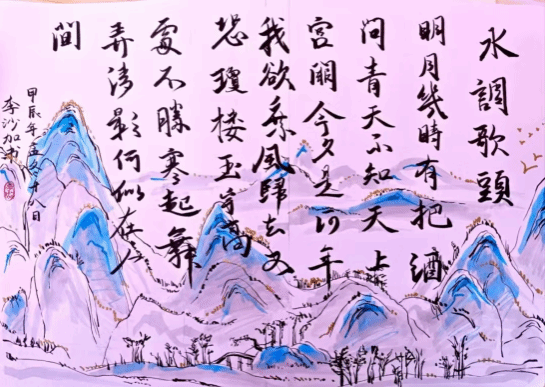 水調歌頭
明月幾時有把酒
問青天不知天上
宮闕今夕是何年
我欲乘風歸去又
恐瓊楼玉宇高
處不勝寒起舞
弄清影何似在人
間
甲辰年孟冬十八日
李沙加